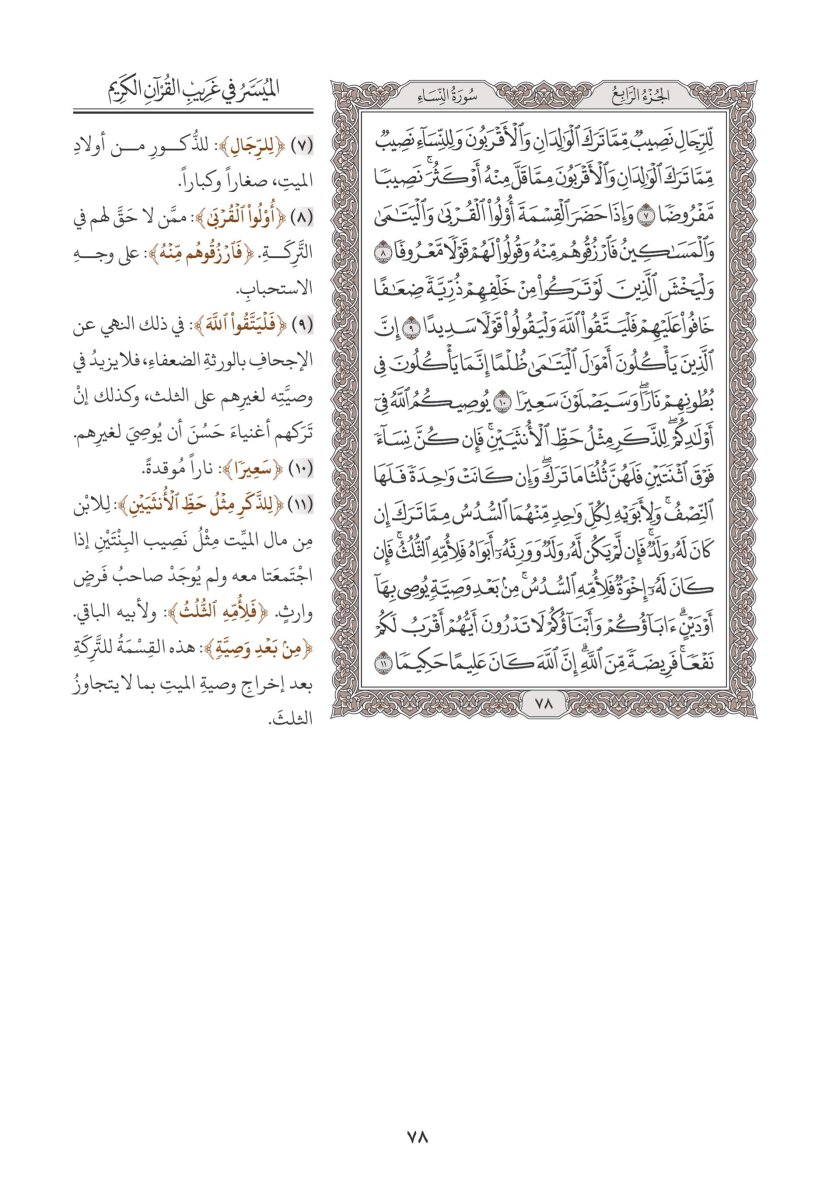 الجُزْءُ الرَّابِعُ
سُورَةُ النِّسَاءِ
لِّلرِّجَالِ نَصِيبٌ مِّمَّا تَرَكَ ٱلْوَٰلِدَانِ وَٱلْأَقْرَبُونَ وَلِلنِّسَآءِ نَصِيبٌ
مِّمَّا تَرَكَ ٱلْوَٰلِدَانِ وَٱلْأَقْرَبُونَ مِمَّا قَلَّ مِنْهُ أَوْ كَثُرَۚ نَصِيبًا
مَّفْرُوضًا ٧ وَإِذَا حَضَرَ ٱلْقِسْمَةَ أُو۟لُوا۟ ٱلْقُرْبَىٰ وَٱلْيَتَٰمَىٰ
وَٱلْمَسَٰكِينُ فَٱرْزُقُوهُم مِّنْهُ وَقُولُوا۟ لَهُمْ قَوْلًا مَّعْرُوفًا ٨
وَلْيَخْشَ ٱلَّذِينَ لَوْ تَرَكُوا۟ مِنْ خَلْفِهِمْ ذُرِّيَّةً ضِعَٰفًا
خَافُوا۟ عَلَيْهِمْ فَلْيَتَّقُوا۟ ٱللَّهَ وَلْيَقُولُوا۟ قَوْلًا سَدِيدًا ٩ إِنَّ
ٱلَّذِينَ يَأْكُلُونَ أَمْوَٰلَ ٱلْيَتَٰمَىٰ ظُلْمًا إِنَّمَا يَأْكُلُونَ فِى
بُطُونِهِمْ نَارًاۖ وَسَيَصْلَوْنَ سَعِيرًا ١٠ يُوصِيكُمُ ٱللَّهُ فِىٓ
أَوْلَٰدِكُمْۖ لِلذَّكَرِ مِثْلُ حَظِّ ٱلْأُنثَيَيْنِۚ فَإِن كُنَّ نِسَآءً
فَوْقَ ٱثْنَتَيْنِ فَلَهُنَّ ثُلُثَا مَا تَرَكَۖ وَإِن كَانَتْ وَٰحِدَةً فَلَهَا
ٱلنِّصْفُۚ وَلِأَبَوَيْهِ لِكُلِّ وَٰحِدٍ مِّنْهُمَا ٱلسُّدُسُ مِمَّا تَرَكَ إِن
كَانَ لَهُۥ وَلَدٌۚ فَإِن لَّمْ يَكُن لَّهُۥ وَلَدٌ وَوَرِثَهُۥٓ أَبَوَاهُ فَلِأُمِّهِ ٱلثُّلُثُۚ فَإِن
كَانَ لَهُۥٓ إِخْوَةٌ فَلِأُمِّهِ ٱلسُّدُسُۚ مِنۢ بَعْدِ وَصِيَّةٍ يُوصِى بِهَآ
أَوْ دَيْنٍۗ ءَابَآؤُكُمْ وَأَبْنَآؤُكُمْ لَا تَدْرُونَ أَيُّهُمْ أَقْرَبُ لَكُمْ
نَفْعًاۚ فَرِيضَةً مِّنَ ٱللَّهِۗ إِنَّ ٱللَّهَ كَانَ عَلِيمًا حَكِيمًا ١١
٧٨
المُيَسَّرُ في غَرِيبِ القُرْآنِ الكَرِيم
(٧) ﴿لِلرِّجَالِ﴾: للذُّكورِ من أولادِ
الميتِ، صغاراً وكباراً.
(٨) ﴿أُو۟لُوا۟ ٱلْقُرْبَىٰ﴾: ممَّن لا حَقَّ لهم في
التَّرِكَةِ. ﴿فَٱرْزُقُوهُم مِّنْهُ﴾: على وجهِ
الاستحبابِ.
(٩) ﴿فَلْيَتَّقُوا۟ ٱللَّهَ﴾: في ذلك النهي عن
الإجحافِ بالورثةِ الضعفاءِ، فلا يزيدُ في
وصيَّتِه لغيرِهم على الثلث، وكذلك إنْ
تَرَكهم أغنياءَ حَسُنَ أن يُوصِيَ لغيرِهم.
(١٠) ﴿سَعِيرًا﴾: ناراً مُوقدةً.
(١١) ﴿لِلذَّكَرِ مِثْلُ حَظِّ ٱلْأُنثَيَيْنِ﴾: لِلابْن
مِن مال الميِّت مِثْلُ نَصِيب البِنْتَيْنِ إذا
اجْتَمَعَتا معه ولم يُوجَدْ صاحبُ فَرضٍ
وارثٍ. ﴿فَلِأُمِّهِ ٱلثُّلُثُ﴾: ولأبيه الباقي.
﴿مِنۢ بَعْدِ وَصِيَّةٍ﴾: هذه القِسْمَةُ للتَّرِكَةِ
بعد إخراجِ وصيةِ الميتِ بما لا يتجاوزُ
الثلثَ.
٧٨